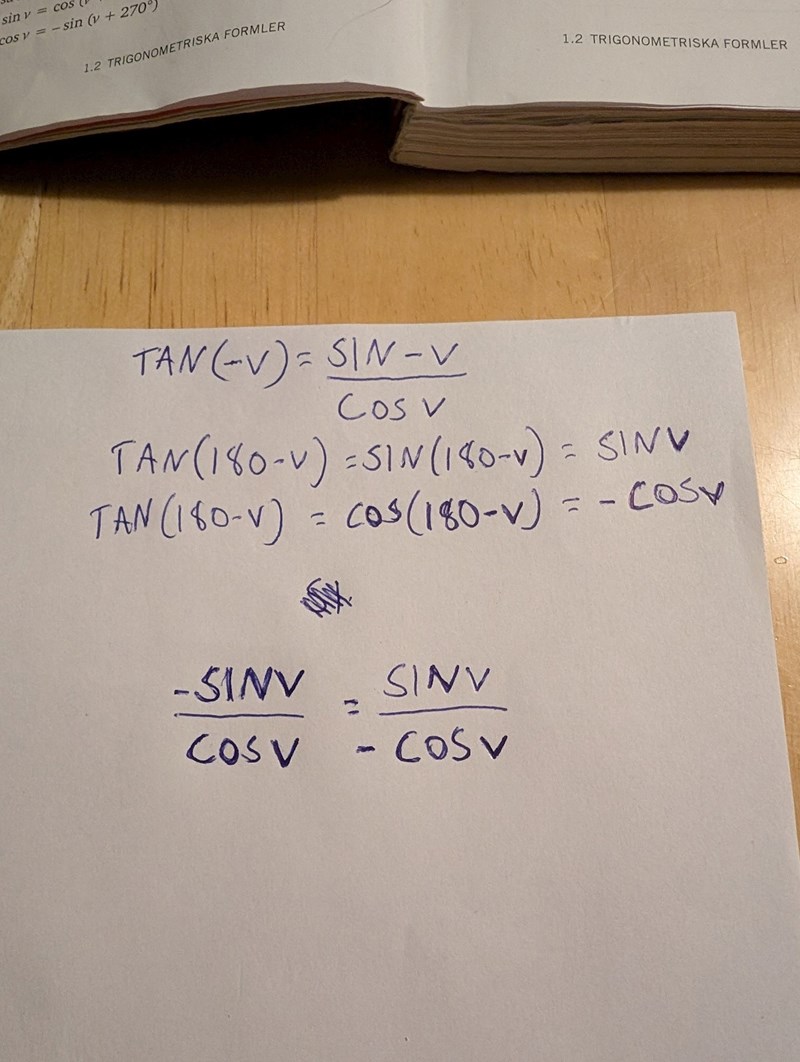 sin v = cos (v
cos v = − sin (v + 270°)
1.2 TRIGONOMETRISKA FORMLER
1.2 TRIGONOMETRISKA FORMLER
TAN(-V) = SIN -V
COS V
TAN(180-V) = SIN(180-V) = SINV
TAN(180-V) = COS(180-V) = - COSV
-SINV = SINV
COSV - COSV